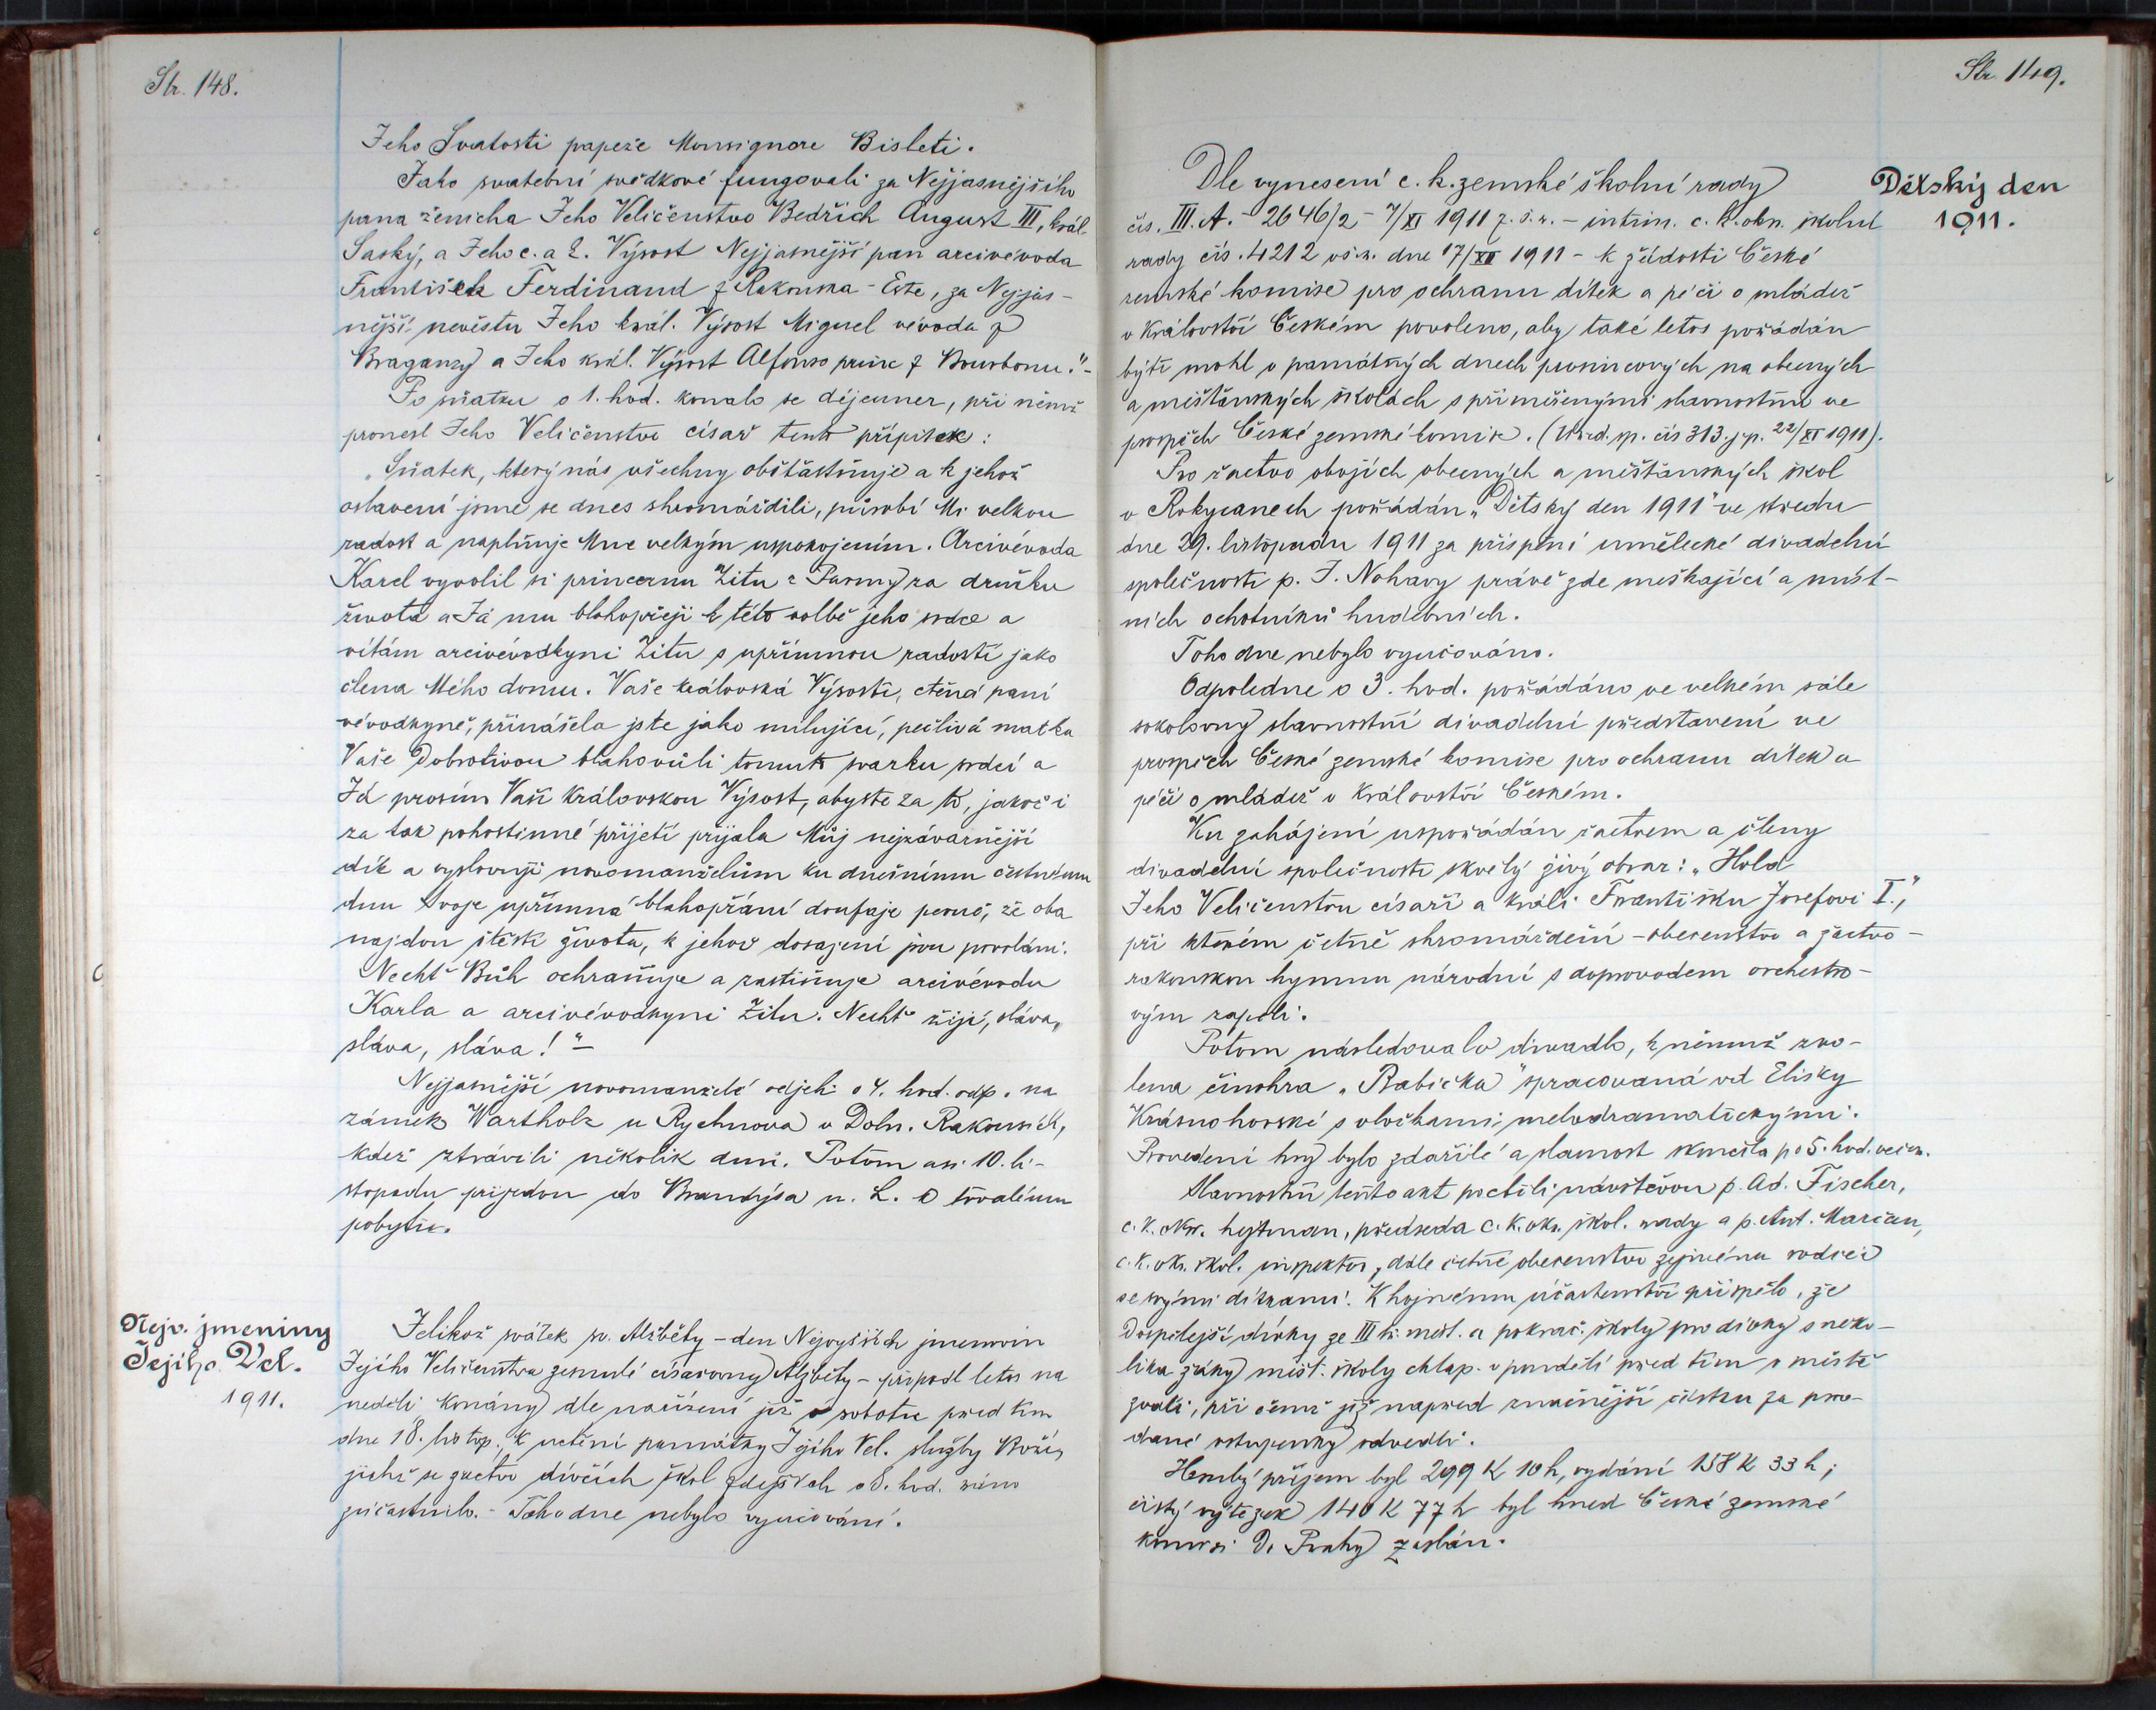 Str. 148.
Jeho Svatosti papeže Monsignore Bisleti.
Jako svatební svědkové fungovali za Nejjasnějšího
pana ženicha Jeho Veličenstvo Bedřich August III, král
Saský, a Jeho c. a k. Výsost Nejjasnější pan arcivévoda
František Ferdinand z Rakouska-Este, za Nejjas-
nější nevěstu Jeho král. Výsost Miguel vévoda z
Braganzy a Jeho král. Výsost Alfonso princ z Bourbonu."-
Po sňatku o 1. hod. konalo se déjeuner, při němž
pronesl Jeho Veličenstvo císař tento přípitek:
"Sňatek, který nás všechny obšťastňuje a k jehož
oslavení jsme se dnes shromáždili, působí Mi velkou
radost a naplňuje Mne velkým uspokojením. Arcivévoda
Karel vyvolil si princeznu Zitu z Parmy za družku
života a Já mu blahopřeji k této volbě jeho srdce a
vítám arcivévodkyni Zitu s upřímnou radostí jako
člena Mého domu. Vaše královská Výsosti, ctěná paní
vévodkyně, přinášela jste jako milující, pečlivá matka
Vaše Dobrotivou blahovůli tomuto svazku srdcí a
Já prosím Vaši královskou Výsost, abyste za to, jakož i
za tak pohostinné přijetí přijala Můj nejzávaznější
dík a vyslovuji novomanželům ku dnešnímu čestnému
dnu Svoje upřímná blahopřání doufaje pevně, že oba
najdou štěstí života, k jehož dosažení jsou povoláni.
Nechť Bůh ochraňuje a zastiňuje arcivévodu
Karla a arcivévodkyni Zitu. Nechť žijí, sláva,
sláva, sláva!"-
Nejjasnější novomanželé odjeli o 4. hod. odp. na
zámek Wartholz u Rychnova v Doln. Rakousích,
kdež ztrávili několik dní. Potom asi 10. li-
stopadu přijedou do Brandýsa n. L. k trvalému
pobytu.
Nejv. jmeniny
Jejího Vel.
1911.
Jelikož svátek sv. Alžběty - den Nejvyšších jmenovin
Jejího Veličenstva zesnulé císařovny Alžběty - připadl letos na
neděli konány dle nařízení již v sobotu před tím
dne 18. listop. k uctění památky Jejího Vel. služby Boží,
jichž se žactvo dívčích škol zdejších o 8. hod. ráno
zúčastnilo. - Toho dne nebylo vyučování.
Str. 149.
Dětský den
1911.
Dle vynesení c. k. zemské školní rady
čís. III. A. - 2646/2 - 7/XI 1911 z. š. r. - intim. c. k. okr. školní
rady čís. 4212 oš. r. dne 17/XI 1911 - k žádosti České
zemské komise pro ochranu dítek a péči o mládež
v království Českém povoleno, aby také letos pořádán
býti mohl v památných dnech prosincových na obecných
a měšťanských školách s přiměřenými slavnostmi ve
prospěch České zemské komise. (Úřed. sp. čís 313. j. p. 22/XI 1911).
Pro žactvo obojích obecných a měšťanských škol
v Rokycanech pořádán "Dětský den 1911" ve středu
dne 29. listopadu 1911 za přispění umělecké divadelní
společnosti p. J. Nohavy právě zde meškající a míst-
ních ochotníků hudebních.
Toho dne nebylo vyučováno.
Odpoledne o 3. hod. pořádáno ve velkém sále
sokolovny slavnostní divadelní představení ve
prospěch České zemské komise pro ochranu dítek a
péči o mládež v království Českém.
Ku zahájení uspořádán žactvem a členy
divadelní společnosti skvělý živý obraz: "Hold
Jeho Veličenstvu císaři a králi Františku Josefovi I.",
při kterém četně shromáždění - obecenstvo a žactvo -
rakouskou hymnu národní s doprovodem orchestro-
vým zapěli.
Potom následovalo divadlo, k němuž zvo-
lena činohra "Babička" spracovaná od Elišky
Krásnohorské s vložkami melodramatickými.
Provedení hry bylo zdařilé a slavnost skončila po 5. hod. večer.
Slavnostní tento akt poctili návštěvou p. Ad. Fischer,
c. k. okr. hejtman, předseda c. k. okr. škol. rady a p. Ant. Mařan,
c. k. okr. škol. inspektor, dále četné obecenstvo zejména rodiče
se svými dítkami. K hojnému účastenství přispělo, že
dospělejší dívky ze III tř. měšť. a pokrač. školy pro dívky s něko-
lika žáky měšť. školy chlap. v pondělí před tím v městě
zvali, při čemž již napřed značnější částku za pro-
dané vstupenky odvedli.
Hrubý příjem byl 299 K 10 h, vydání 158 K 33 h;
čistý výtěžek 140 K 77 h byl hned České zemské
komisi do Prahy zaslán.